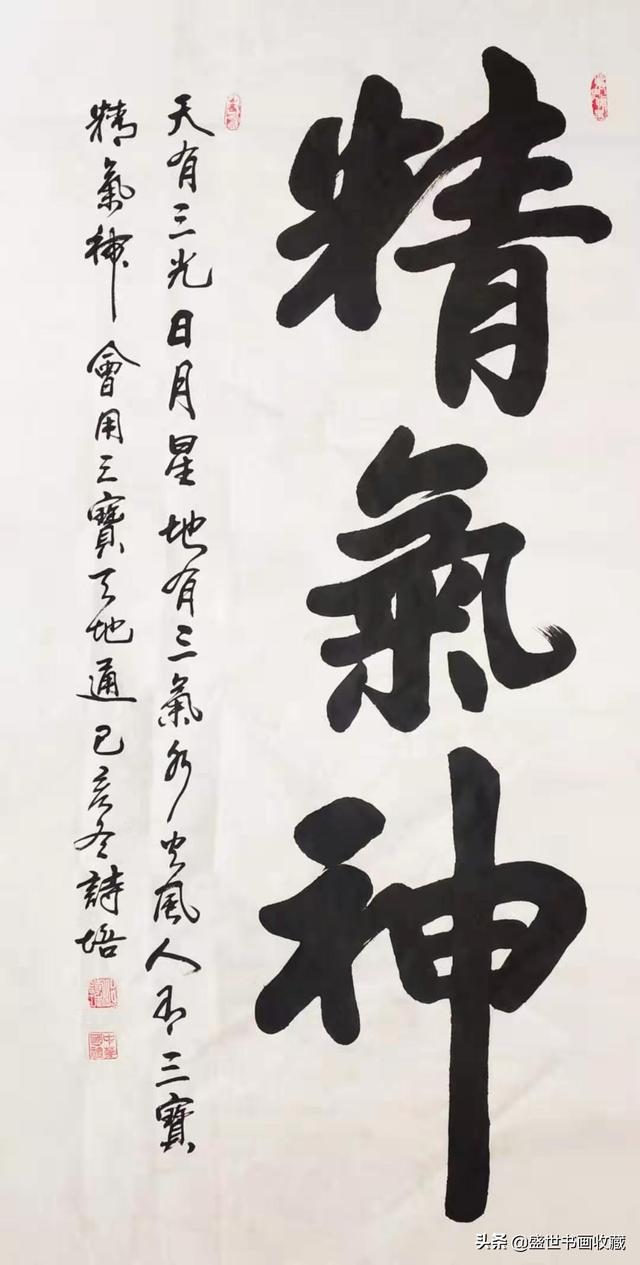 精氣神
天有三光日月星地有三氣水火風人有三寶
精氣神會用三寶天地通己亥冬詩培
头条 @盛世书画收藏